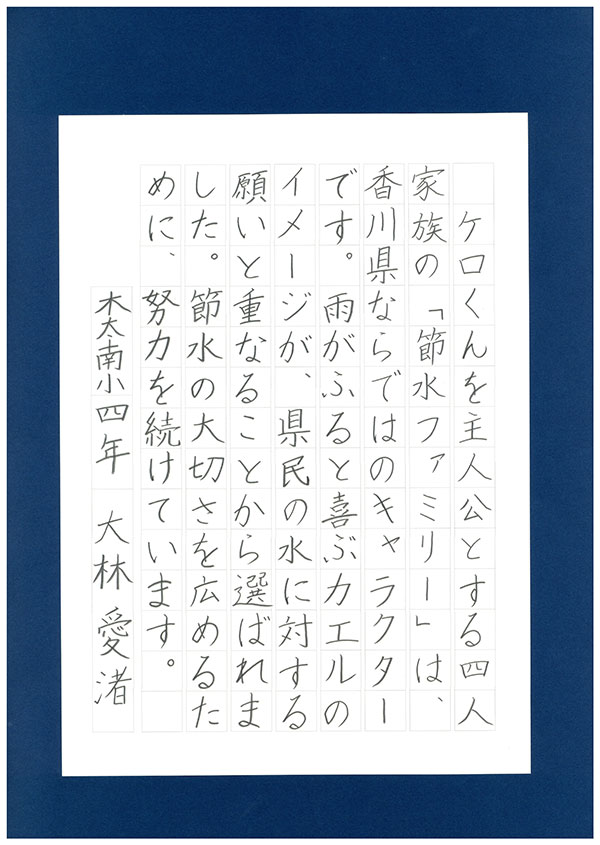 ケロくんを主人公とする四人
家族の「節水ファミリー」は、
香川県ならではのキャラクター
です。雨がふると喜ぶカエルの
イメージが、県民の水に対する
願いと重なることから選ばれま
した。節水の大切さを広めるた
めに、努力を続けています。
木太南小四年　大林愛渚